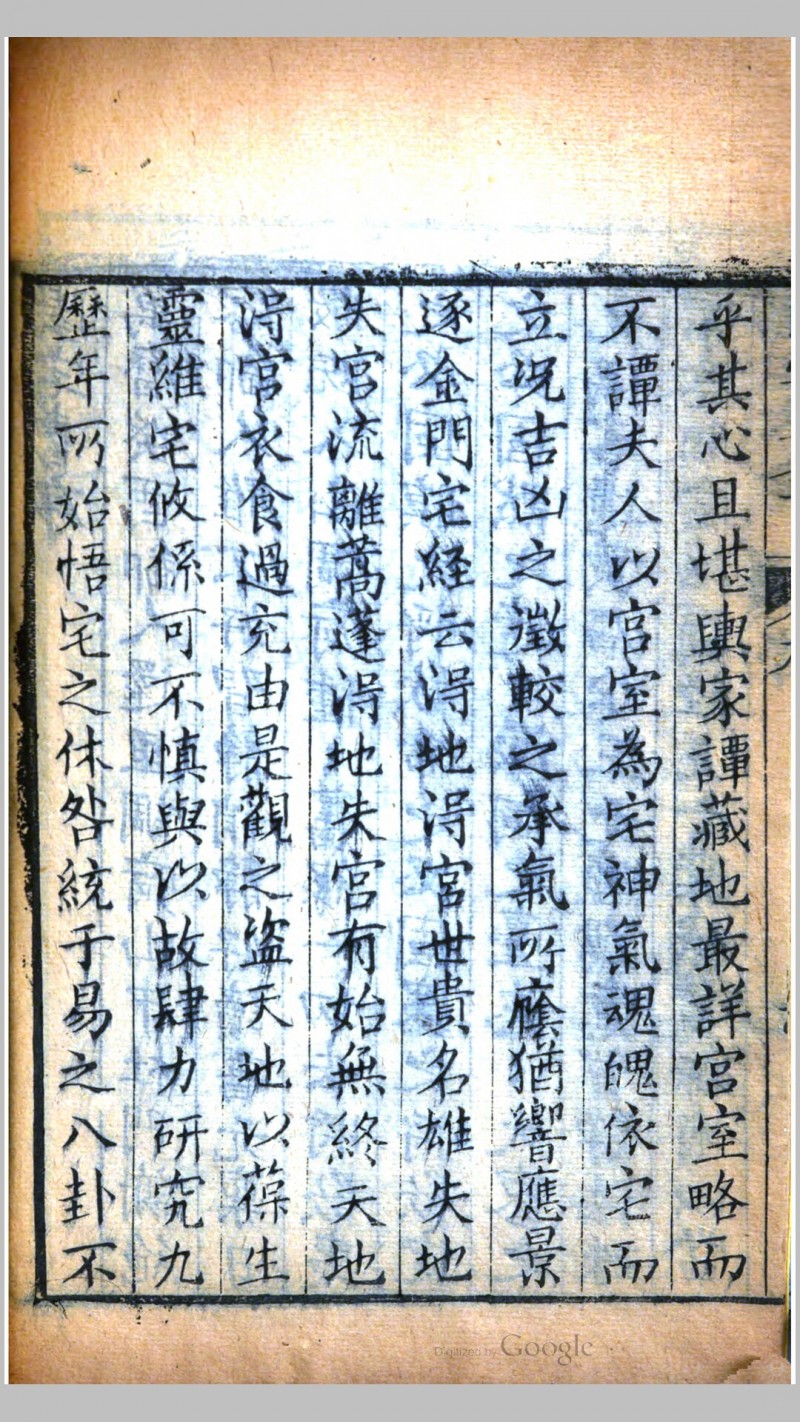 乎其心且堪輿家譚藏地最詳宮室略而
不譚夫人以宮室為宅神氣魂魄依宅而
立況吉凶之徵較之承氣所廕猶響應景
逐金門宅経云淂地淂宮世貴名雄失地
失宮流離蒿蓬淂地失宮有始無終天地
淂宮衣食過充由是觀之盜天地以葆生
靈維宅攸係可不慎與以故肆力研究九
歷年所始悟宅之休咎統于易之八卦不
Digitized by Google